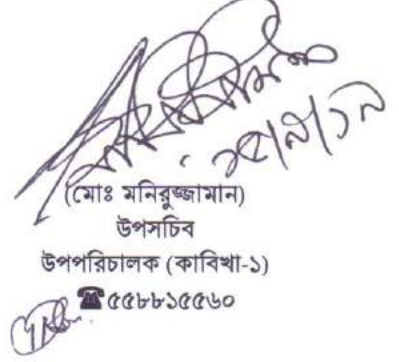 (মোঃ মনিরুজ্জামান)
উপসচিব
উপপরিচালক (কাবিখা-১)
☎৫৫৮৮১৫৫৬০